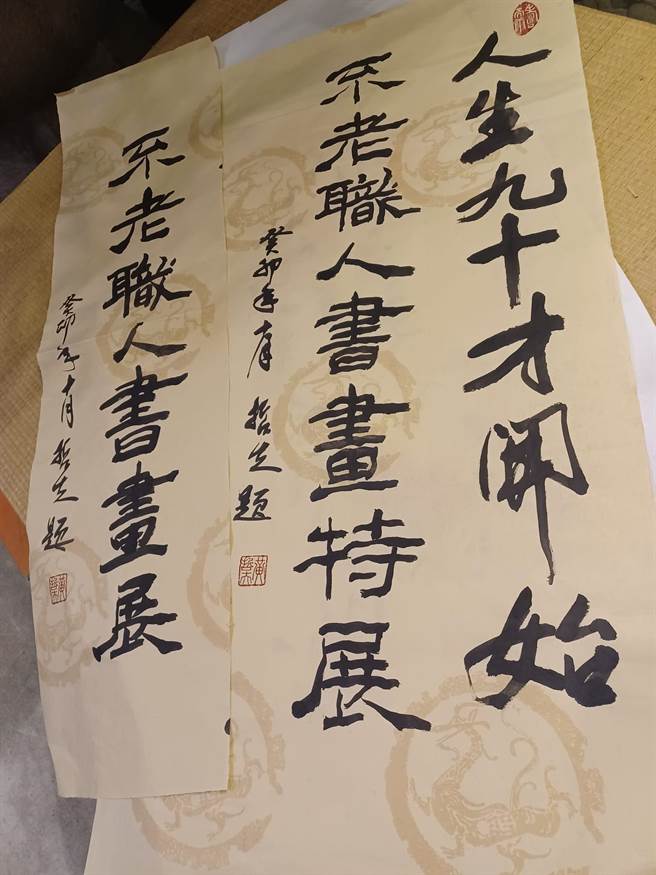 人生九十才開始
不老職人書畫特展
癸卯年 哲 題
不老職人書畫展
癸卯年十月 哲 題